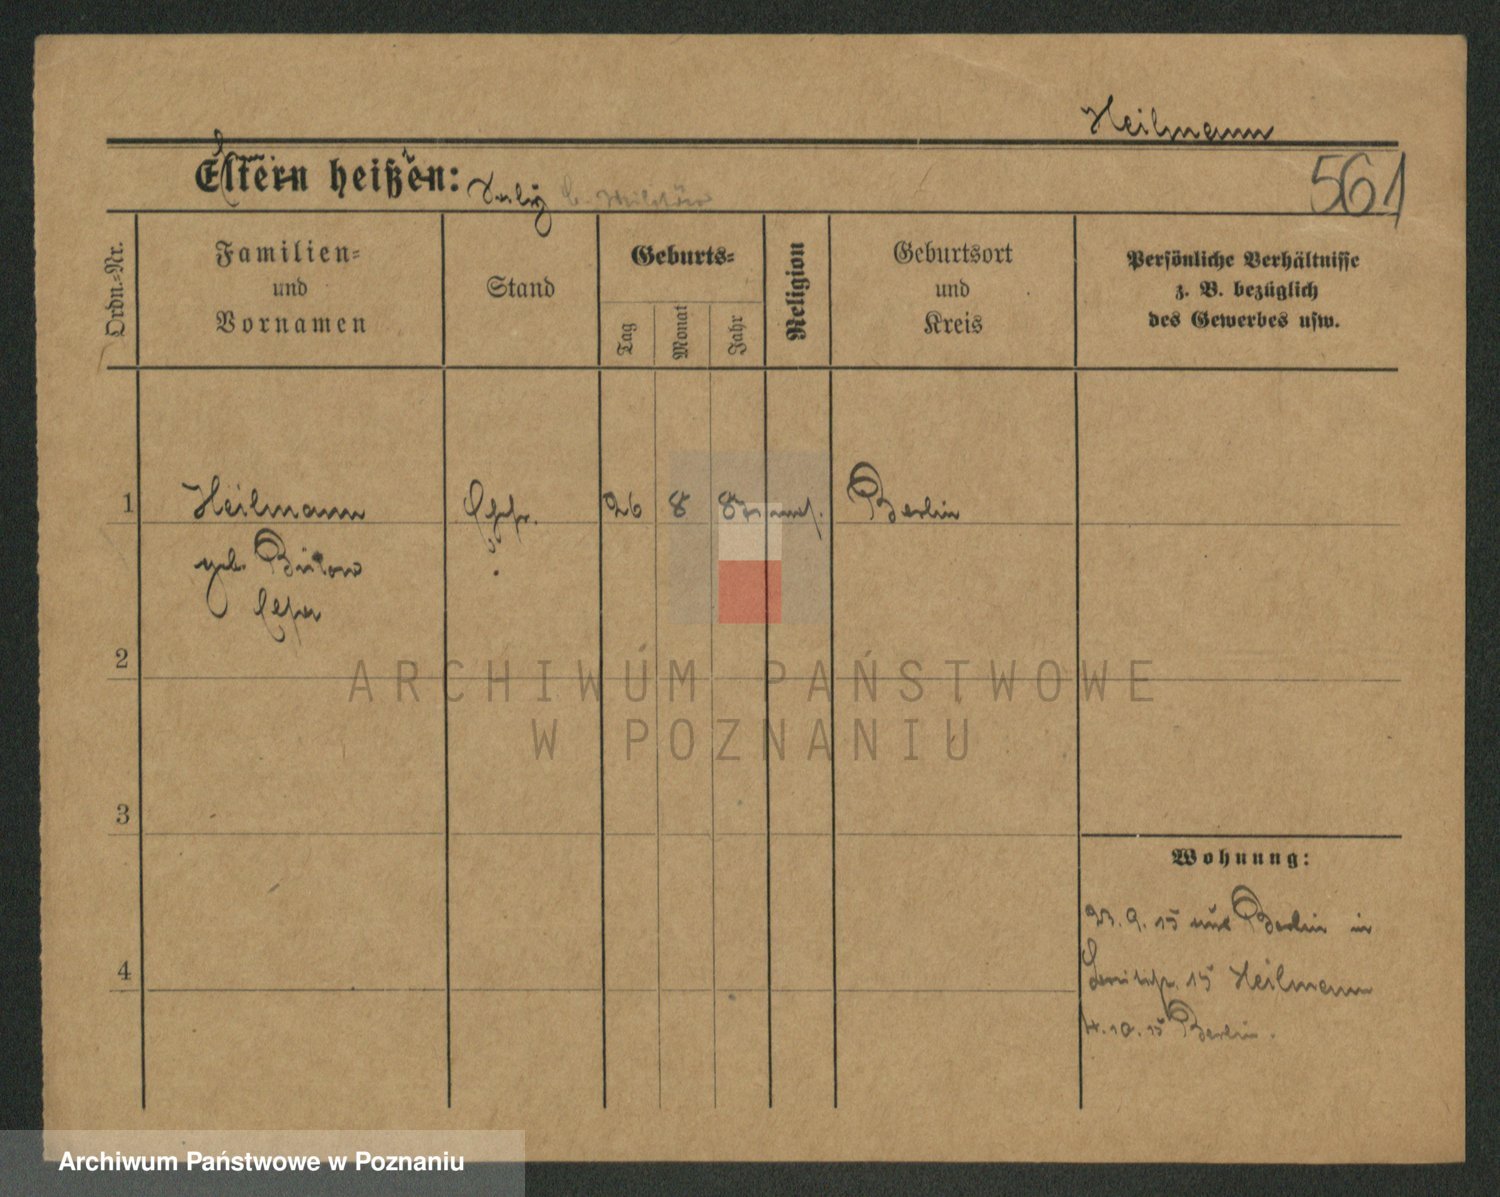 Heilmann
Eltern heißen:
561
Ordn.-Nr.
Familien-
und
Vornamen
Stand
Geburts-
Tag
Monat
Jahr
Religion
Geburtsort
und
Kreis
Persönliche Verhältnisse
z. B. bezüglich
des Gewerbes usw.
1 Heilmann 26 8 Berlin
geb. Bülow
2
3
4
Wohnung:
23. 9. 15 aus Berlin in
15 Heilmann
4. 10. 15 Berlin.
ARCHIWUM PAŃSTWOWE
W POZNANIU
Archiwum Państwowe w Poznaniu